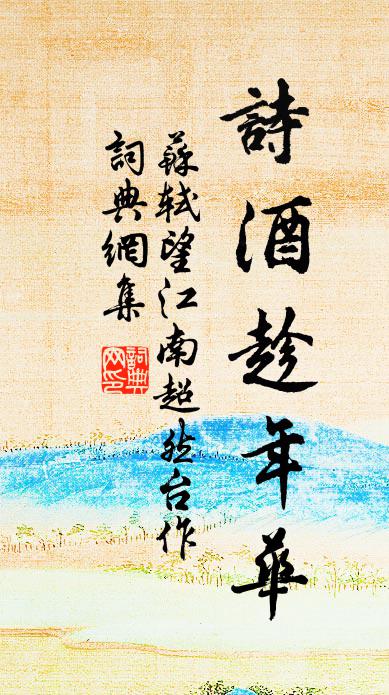 詩酒趁年華
蘇軾望江南超然台作
詞典網集
詞典
网印